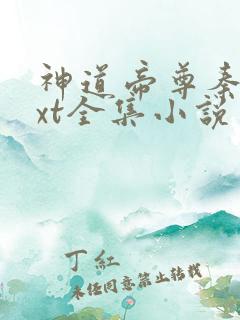 神道帝尊秦
xt全集小说
丁红
未经同意禁止转载